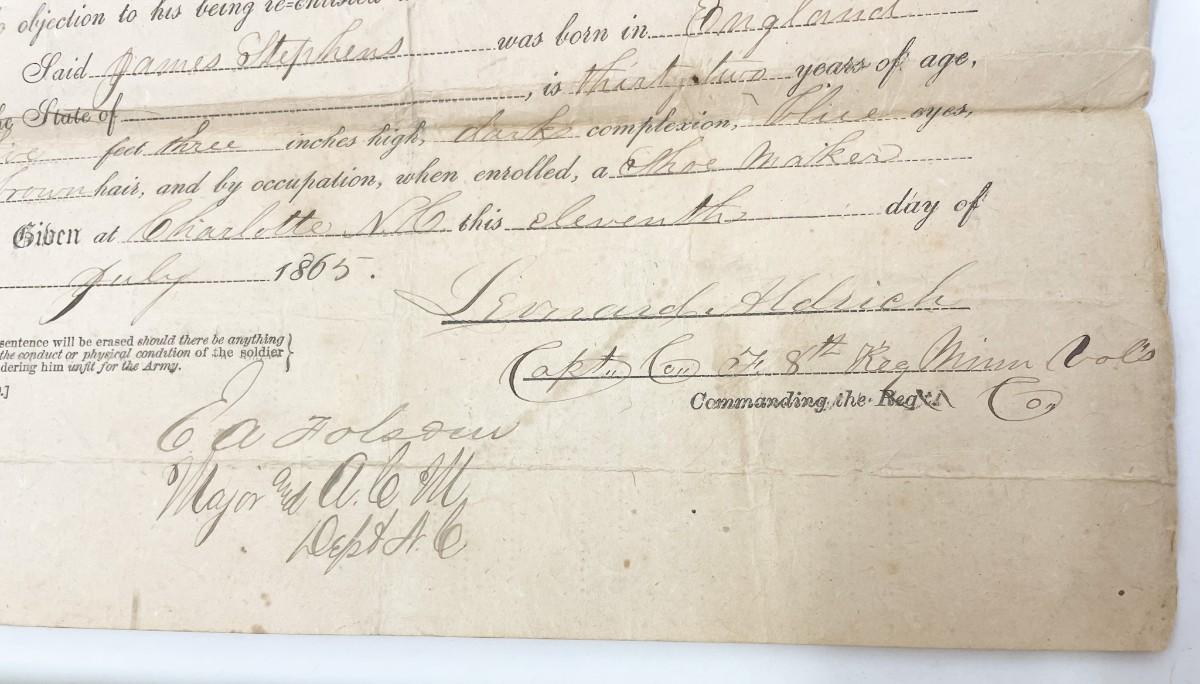 objection to his being re-enlisted
Said James Stephens was born in England
State of , is thirty two years of age,
feet three inches high, dark complexion, blue eyes,
brown hair, and by occupation, when enrolled, a Shoe Maker
Given at Charlotte N.C. this eleventh day of
July 1865.
Leonard Aldrich
sentence will be erased should there be anything
the conduct or physical condition of the soldier
dering him unfit for the Army.
Capt. Co. F. 8th Reg Minn Vols
Commanding the Reg't. Co.
E A Folsom
Major and A. C. M.
Dept N. C